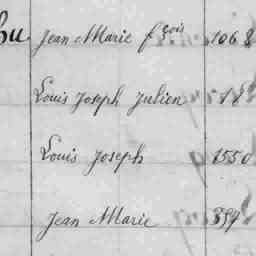 hu Jean Marie fçois 1068
Louis Joseph Julien 18
Louis Joseph 1550
Jean Marie 359